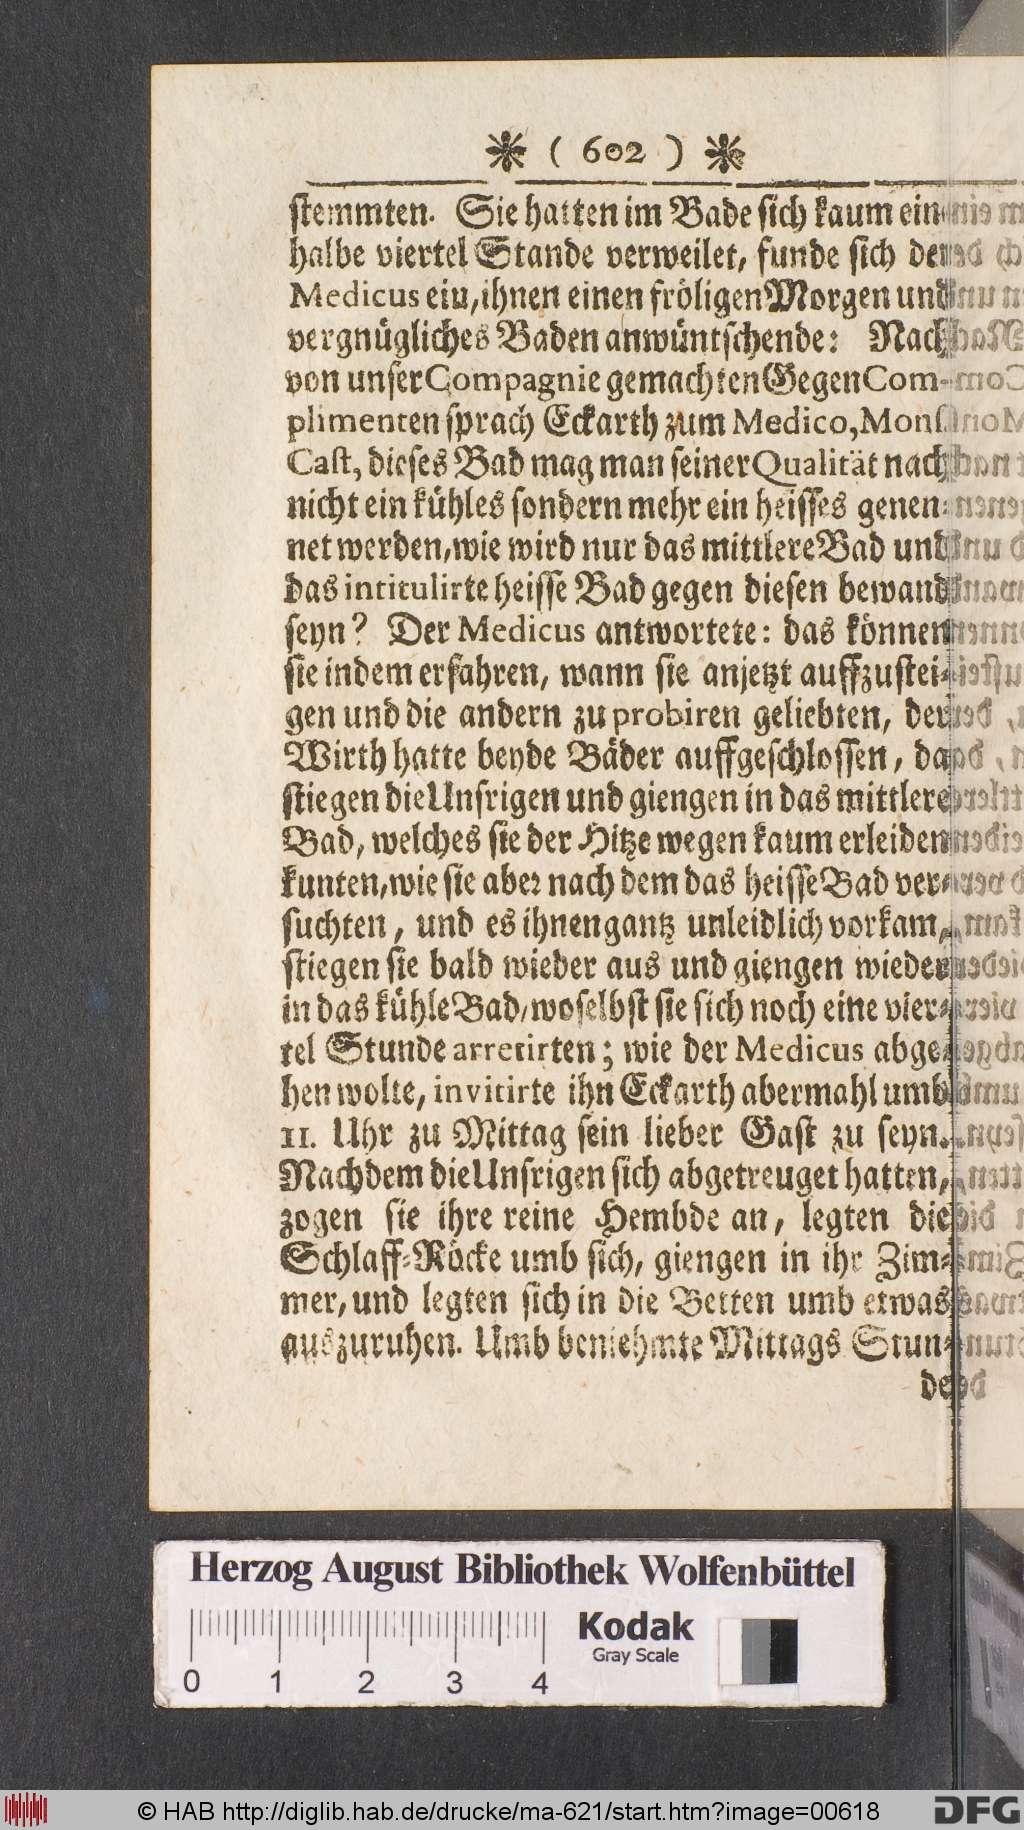 ( 602 )
stemmten. Sie hatten im Bade sich kaum ein
halbe viertel Stande verweilet, funde sich der
Medicus eiu, ihnen einen fröligen Morgen und
vergnügliches Baden anwüntschende: Nach
von unser Compagnie gemachten Gegen Com-
plimenten sprach Eckarth zum Medico, Mons.
Cast, dieses Bad mag man seiner Qualität nach
nicht ein kühles sondern mehr ein heisses genen-
net werden, wie wird nur das mittlere Bad und
das intitulirte heisse Bad gegen diesen bewand
seyn? Der Medicus antwortete: das können
sie indem erfahren, wann sie anjetzt auffzustei-
gen und die andern zu probiren geliebten, der
Wirth hatte beyde Bäder auffgeschlossen, da
stiegen die Unsrigen und giengen in das mittlere
Bad, welches sie der Hitze wegen kaum erleiden
kunten, wie sie aber nach dem das heisse Bad ver-
suchten, und es ihnen gantz unleidlich vorkam,
stiegen sie bald wieder aus und giengen wieder
in das kühle Bad, woselbst sie sich noch eine vier-
tel Stunde arretirten; wie der Medicus abge-
hen wolte, invitirte ihn Eckarth abermahl umb
11. Uhr zu Mittag sein lieber Gast zu seyn.
Nachdem die Unsrigen sich abgetreuget hatten,
zogen sie ihre reine Hembde an, legten die
Schlaff-Röcke umb sich, giengen in ihr Zim-
mer, und legten sich in die Betten umb etwas
auszuruhen. Umb beniehmte Mittags Stun-
de
Herzog August Bibliothek Wolfenbüttel
Kodak
Gray Scale
0 1 2 3 4
© HAB http://diglib.hab.de/drucke/ma-621/start.htm?image=00618
DFG